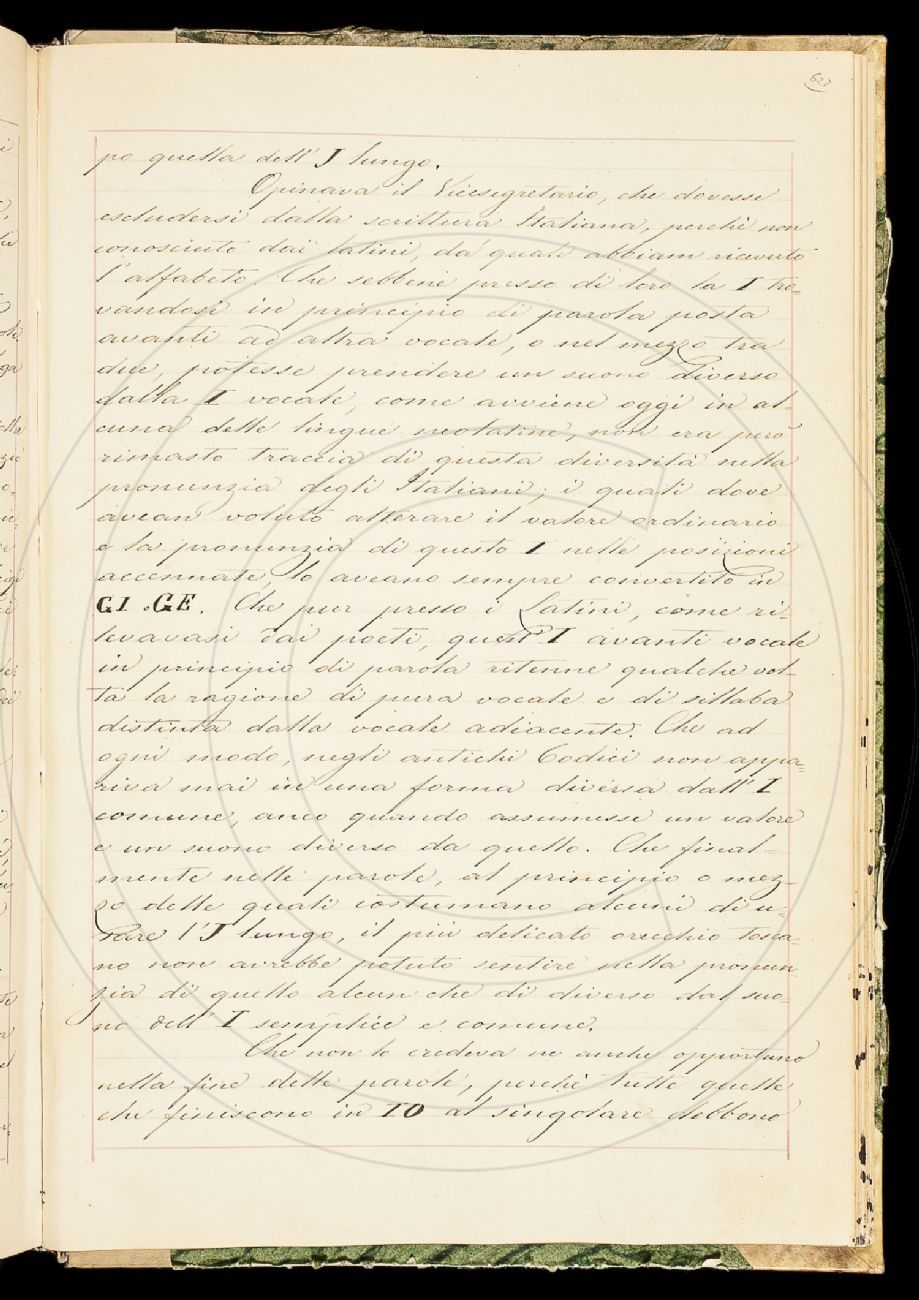 627
po quella dell' J lungo.
Opinava il Vicesegretario, che dovesse
escludersi dalla scrittura Italiana, perchè non
conosciuto dai latini, da' quali abbiam ricevuto
l'alfabeto. Che sebbene presso di loro la I tro=
vandosi in principio di parola posta
avanti ad altra vocale, o nel mezzo tra
due, potesse prendere un suono diverso
dalla I vocale, come avviene oggi in al-
cuna delle lingue neolatine, non era però
rimasto traccia di questa diversità nella
pronunzia degli Italiani; i quali dove
avean voluto alterare il valore ordinario
e la pronunzia di questo I nelle posizioni
accennate, lo aveano sempre convertito in
GI o GE. Che pur presso i Latini, come ri-
levavasi dai poeti, quest' I avanti vocale
in principio di parola ritenne qualche vol-
ta la ragione di pura vocale e di sillaba
distinta dalla vocale adiacente. Che ad
ogni modo, negli antichi Codici non appa=
riva mai in una forma diversa dall' I
comune, anco quando assumesse un valore
e un suono diverso da quello. Che final-
mente nelle parole, al principio o mez-
zo delle quali costumano alcuni di u-
sare l'J lungo, il più delicato orecchio tosca-
no non avrebbe potuto sentire nella pronun
zia di quello alcun che di diverso dal suo-
no dell' I semplice e comune.
Che non lo credeva ne anche opportuno
nella fine delle parole, perchè tutte quelle
che finiscono in IO al singolare debbono